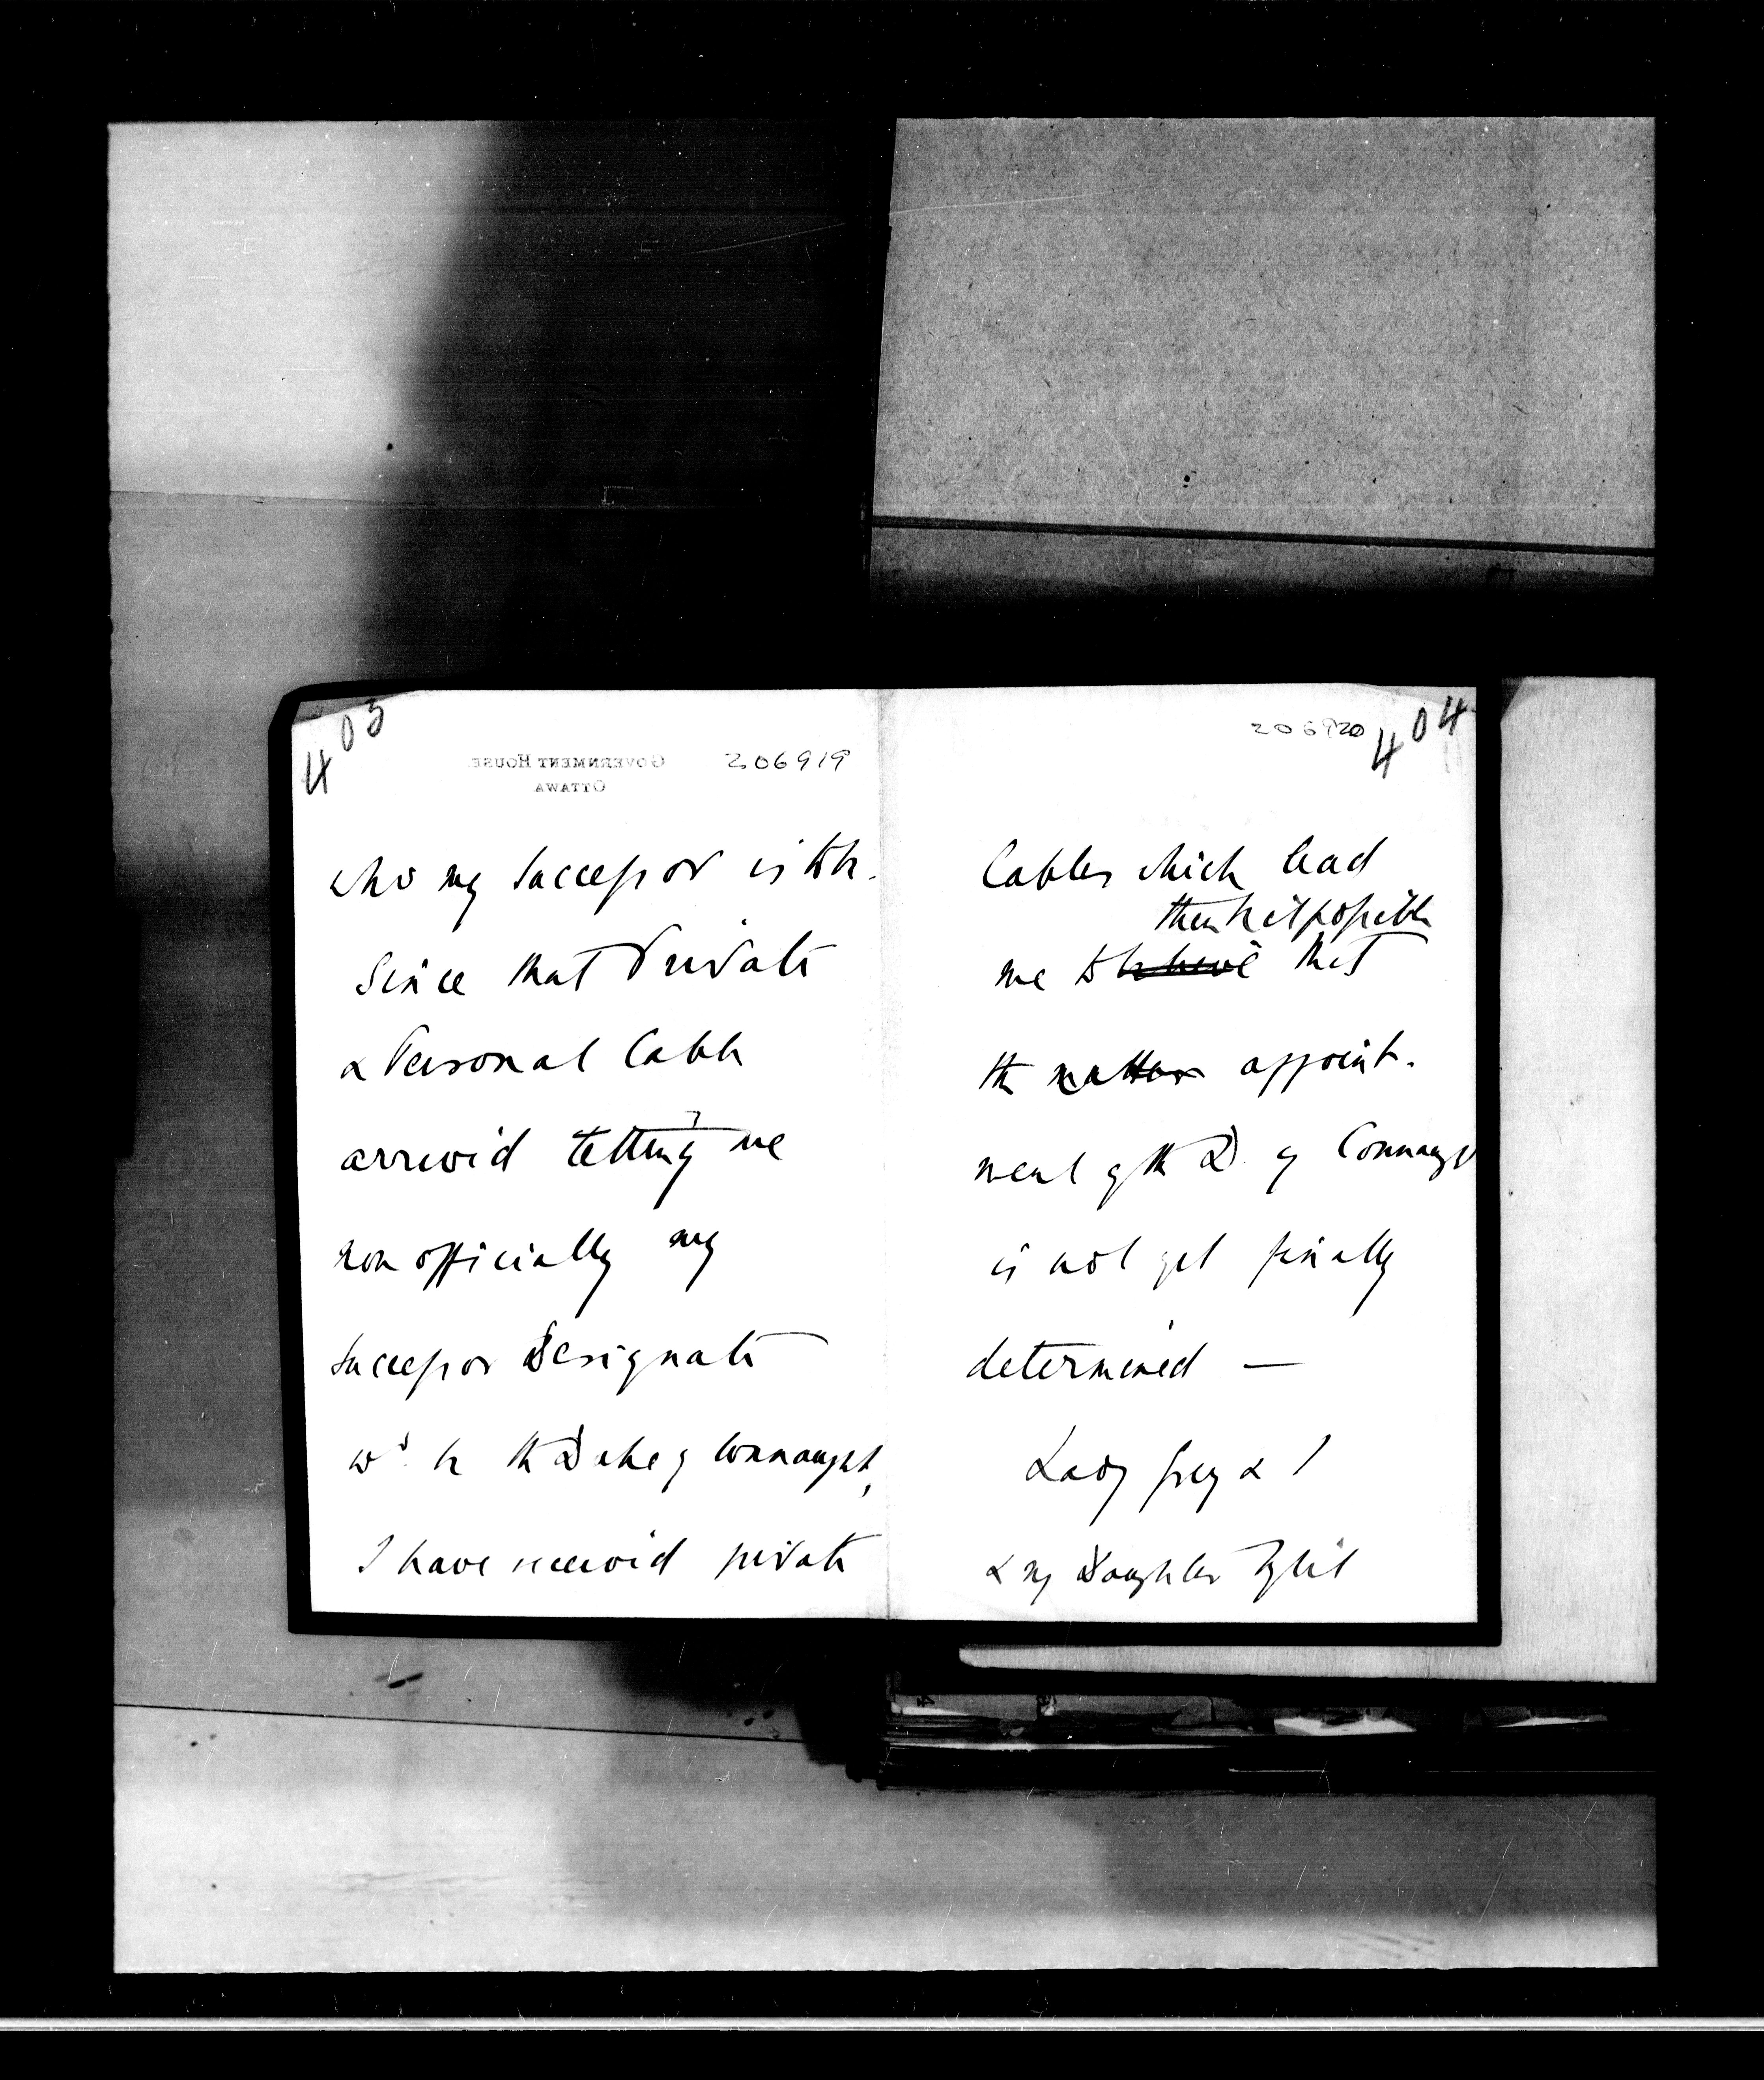 403
GOVERNMENT HOUSE
OTTAWA
206919
who my Successor is to be.
Since that Private
& Personal Cable
arrived telling me
non officially my
Successor Designate
wd. be the Duke of Connaught,
I have received private
206920
404
Cables which lead
think it possible
me to believe that
the matter appoint-
ment of the D. of Connaught
is not yet finally
determined —
Lady Grey & I
& my Daughter